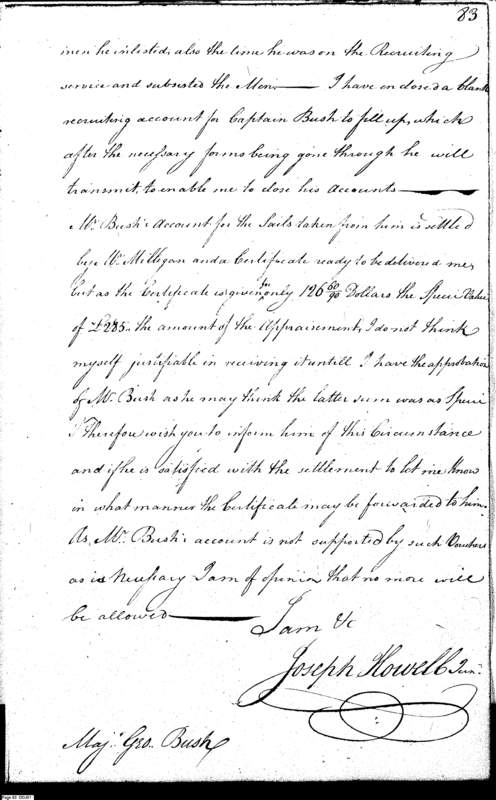 83
men he inlisted, also the time he was on the Recruiting
service and subsisted the Men. — I have enclosed a blank
recruiting account for Captain Bush to fill up, which
after the necessary forms being gone through he will
transmit, to enable me to close his accounts —
Mr. Bush's Account for the Sails taken from him is settled
by Mr. Milligan and a Certificate ready to be delivered me,
but as the Certificate is given in only 126 60/90 Dollars the Specie Value
of £285.. the amount of the Appraisement, I do not think
myself justifiable in receiving it untill I have the approbation
of Mr. Bush as he may think the latter sum was as Specie
I Therefore wish you to inform him of this Circumstance
and if he is satisfied with the settlement to let me know
in what manner the Certificate may be forwarded to him.
As, Mr. Bush's account is not supported by such Vouchers
as is Necessary I am of opinion that no more will
be allowed —
I am &c
Joseph Howell Jun.
Maj. Geo. Bush